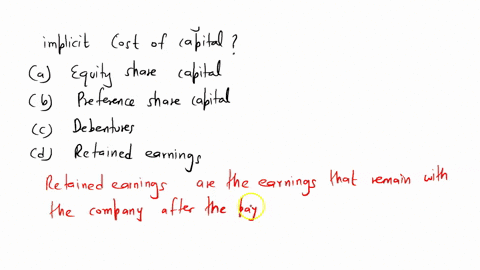 implicit Cost of capital?
(a) Equity share capital
(b) Preference share capital
(c) Debentures
(d) Retained earnings
Retained earnings are the earnings that remain with
the company after the pay